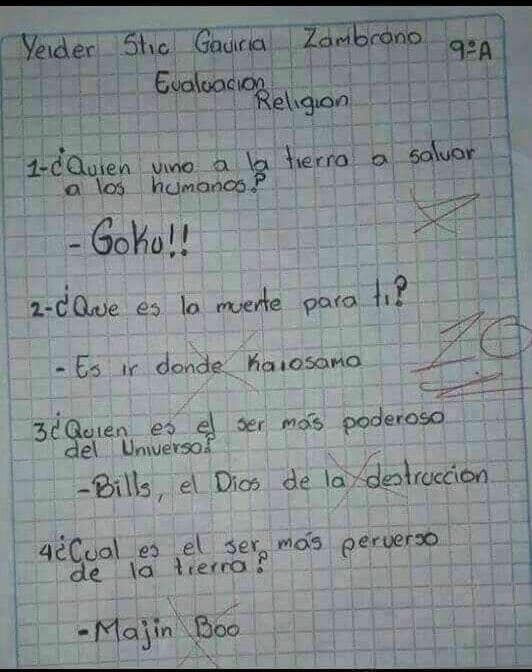 Yeider Stic Gaviria Zambrano 9ºA
Evaluacion
Religion
1-¿Quien vino a la tierra a salvar
a los humanos?
- Goku!!
2-¿Que es la muerte para ti?
- Es ir donde Kaiosama
3¿Quien es el ser más poderoso
del Universo?
-Bills, el Dios de la destruccion
4¿Cual es el ser más perverso
de la tierra?
-Majin Boo